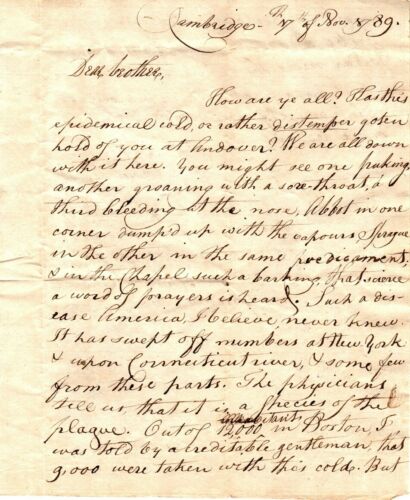 Cambridge 7th of Nov. 1789.
Dear brother,
How are ye all? Has this
epidemical cold, or rather distemper gotten
hold of you at Andover? We are all down
with it here. You might see one puking,
another groaning with a sore-throat, a
third bleeding at the nose, Abbot in one
corner dump'd up with the vapours, Sprague
in the other in the same predicament
& in the Chapel such a barking, that scarce
a word of prayers is heard. Such a dis-
ease America, I believe, never knew.
It has swept off numbers at New York
& upon Connecticut river, & some few
from these parts. The physicians
tell us that it is a species of the
plague. Out of 12,000 inhabitants in Boston, I
was told by a creditable gentleman, that
9,000 were taken with this cold. But